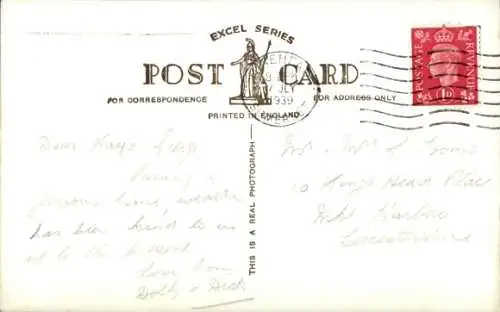 EXCEL SERIES
POST CARD
FOR CORRESPONDENCE
FOR ADDRESS ONLY
PRINTED IN ENGLAND
THIS IS A REAL PHOTOGRAPH
POSTAGE
REVENUE
1D
JLY
1939
Dear
Having a
glorious time, weather
has been kind to us
up to the present
love from
Dolly & Dick
Mr & Mrs
10 Kings Head Place
Mkt Harboro
Leicestershire